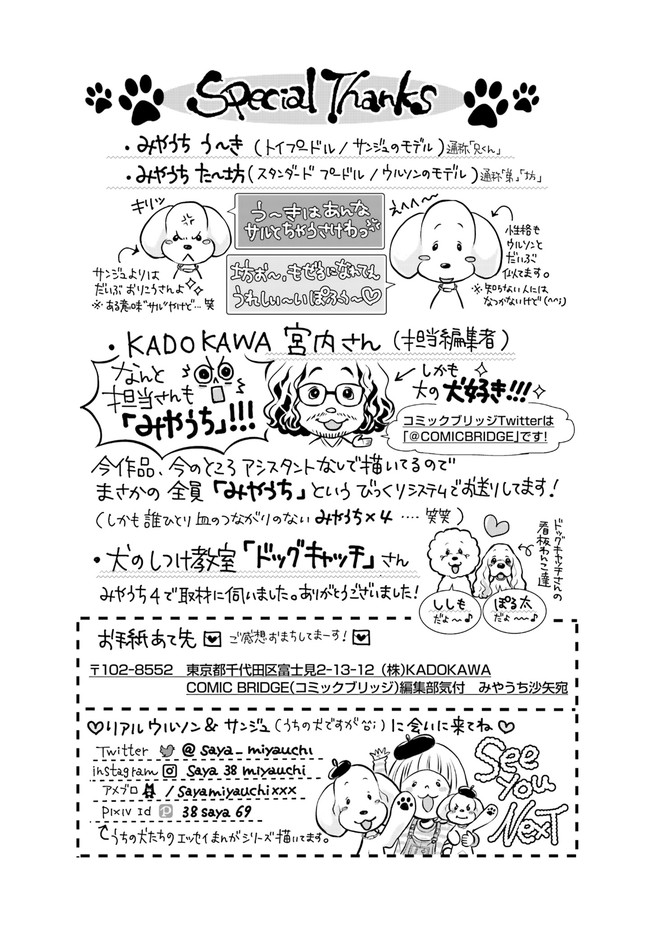 Special Thanks
・みやうち う〜き (トイプードル / サンジュのモデル) 通称「兄くん」
・みやうち た〜坊 (スタンダード プードル / ウルソンのモデル) 通称「弟」「坊」
キリッ
う〜きはあんな
サルとちゃうさけわっ
えへへ〜
サンジュよりは
だいぶ おりこうさんよ
※ある意味"サル"やけど… 笑
坊お〜、もぜるになれてん
うれしい〜いぽろぅ〜♡
性格も
ウルソンと
だいぶ
似てます。
※知らない人には
なつかないけど(^^;)
・KADOKAWA 宮内さん (担当編集者)
なんと
担当さんも
「みやうち」!!!
しかも
大の犬好き!!!
コミックブリッジTwitterは
「@COMICBRIDGE」です!
今作品、今のところ アシスタントなしで描いてるので
まさかの 全員「みやうち」という びっくりシステムでお送りしてます!
(しかも誰ひとり 血のつながりのない みやうち×4 …. 笑笑)
・犬のしつけ教室「ドッグキャッチ」さん
みやうち4で取材に伺いました。ありがとうございました!
ドッグキャッチさんの
看板わんこ達
ししも
だょ〜♪
ぽる太
だょ〜♪
お手紙あて先 ♥ ご感想おまちしてまーす! ♥
〒102-8552 東京都千代田区富士見2-13-12 (株)KADOKAWA
COMIC BRIDGE(コミックブリッジ)編集部気付 みやうち沙矢宛
♡リアル ウルソン & サンジュ(うちの犬ですが^^;)に会いに来てね♡
Twitter @saya_miyauchi
instagram Saya38miyauchi
アメブロ /sayamiyauchixxx
PIXIV id 38saya69
うちの犬たちのエッセイまんがシリーズ描いてます。
See
you
NexT